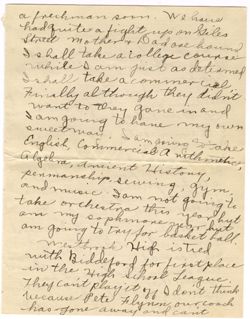 a freshman soon. We have
had quite a fight up on Giles
Street. Mother & Dad are bound
I shall take a college course
while I am just as determined
I shall take a commercial.
Finally although they didn't
want to they gave in and
I am going to have my own
sweet way. I am going to take
English, Commercial Arithmetic,
Algebra, Ancient History,
penmanship, sewing, gym,
and music. I am not going to
take orchestra this year but
on my sophomore year but
am going to try for basket ball.
Westbrook High is tied
with Biddeford for first place
in the High School League.
They can't play it off I don't think
because Pete Flynn, our coach
has gone away and can't